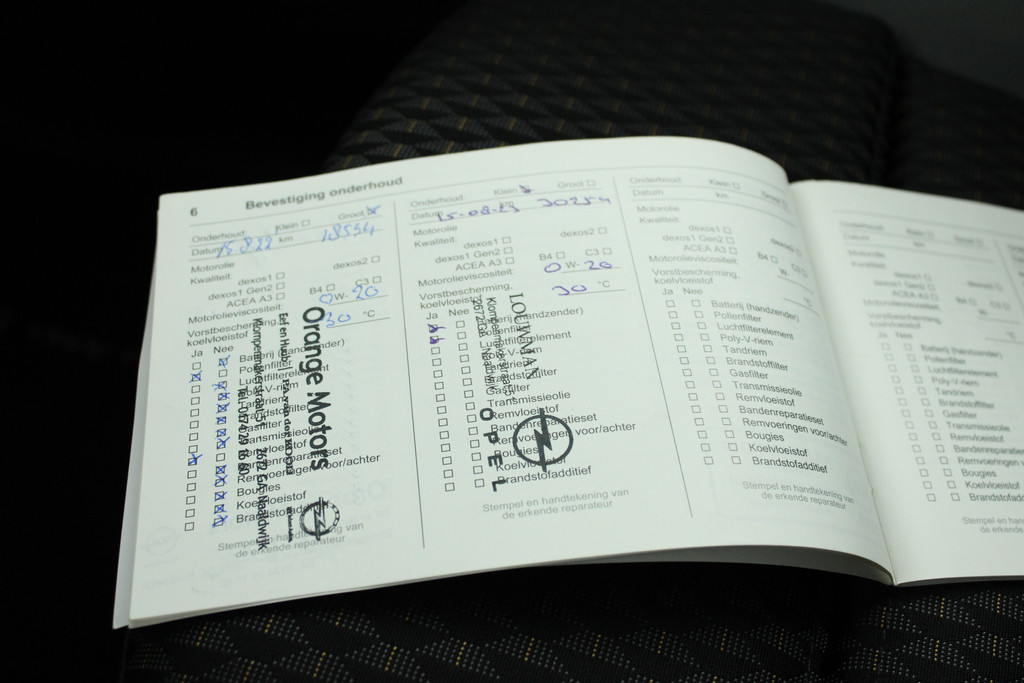 6 Bevestiging onderhoud
Onderhoud: Klein Groot
Datum 15 8 22 km 18554
Motorolie
Kwaliteit: dexos1 dexos2
dexos1 Gen2
ACEA A3 B4 C3
Motorolieviscositeit: 0 W- 20
Vorstbescherming, koelvloeistof 30 °C
Ja Nee
Batterij (handzender)
Pollenfilter
Luchtfilterelement
Poly-V-riem
Remvoeringen voor/achter
Bougies
Koelvloeistof
Brandstofadditief
Stempel en handtekening van
de erkende reparateur
Orange Motors
Klompenmakerstraat 2672 GA Naaldwijk
Onderhoud: Klein Groot
Datum 15-08-23 km 30254
Motorolie
Kwaliteit: dexos1 dexos2
dexos1 Gen2
ACEA A3 B4 C3
Motorolieviscositeit: 0 W- 20
Vorstbescherming, koelvloeistof 30 °C
Ja Nee
Batterij (handzender)
Pollenfilter
Luchtfilterelement
Poly-V-riem
Tandriem
Brandstoffilter
Gasfilter
Transmissieolie
Remvloeistof
Bandenreparatieset
Remvoeringen voor/achter
Bougies
Koelvloeistof
Brandstofadditief
Stempel en handtekening van
de erkende reparateur
LOUWMAN
OPEL
Onderhoud: Klein Groot
Datum km
Motorolie
Kwaliteit:
dexos1 dexos2
dexos1 Gen2
ACEA A3 B4 C3
Motorolieviscositeit: W-
Vorstbescherming,
koelvloeistof °C
Ja Nee
Batterij (handzender)
Pollenfilter
Luchtfilterelement
Poly-V-riem
Tandriem
Brandstoffilter
Gasfilter
Transmissieolie
Remvloeistof
Bandenreparatieset
Remvoeringen voor/achter
Bougies
Koelvloeistof
Brandstofadditief
Stempel en handtekening van
de erkende reparateur
Onderhoud:
Datum km
Motorolie
Kwaliteit:
dexos1
dexos1 Gen2
ACEA A3 B4 C3
Motorolieviscositeit:
Vorstbescherming,
koelvloeistof
Ja Nee
Batterij (handzender)
Pollenfilter
Luchtfilterelement
Poly-V-riem
Tandriem
Brandstoffilter
Gasfilter
Transmissieolie
Remvloeistof
Bandenreparatieset
Remvoeringen voor/achter
Bougies
Koelvloeistof
Brandstofadditief
Stempel en handtekening
de erkende reparateur